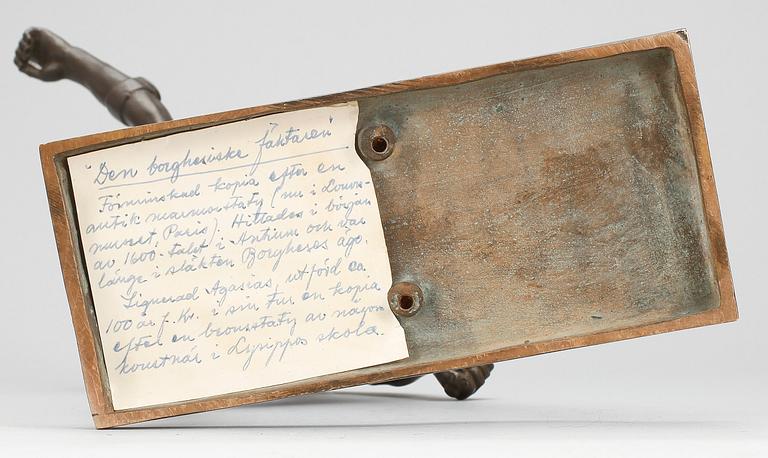 "Den borghesiske fäktaren"
Förminskad kopia efter en
antik marmorstaty (nu i Louvre-
museet, Paris). Hittades i början
av 1600-talet i Antium och var
länge i släkten Borgheses ägo.
Signerad Agasias, utförd ca
100 år f. Kr. i sin tur en kopia
efter en bronsstaty av någon
konstnär i Lysippos skola.